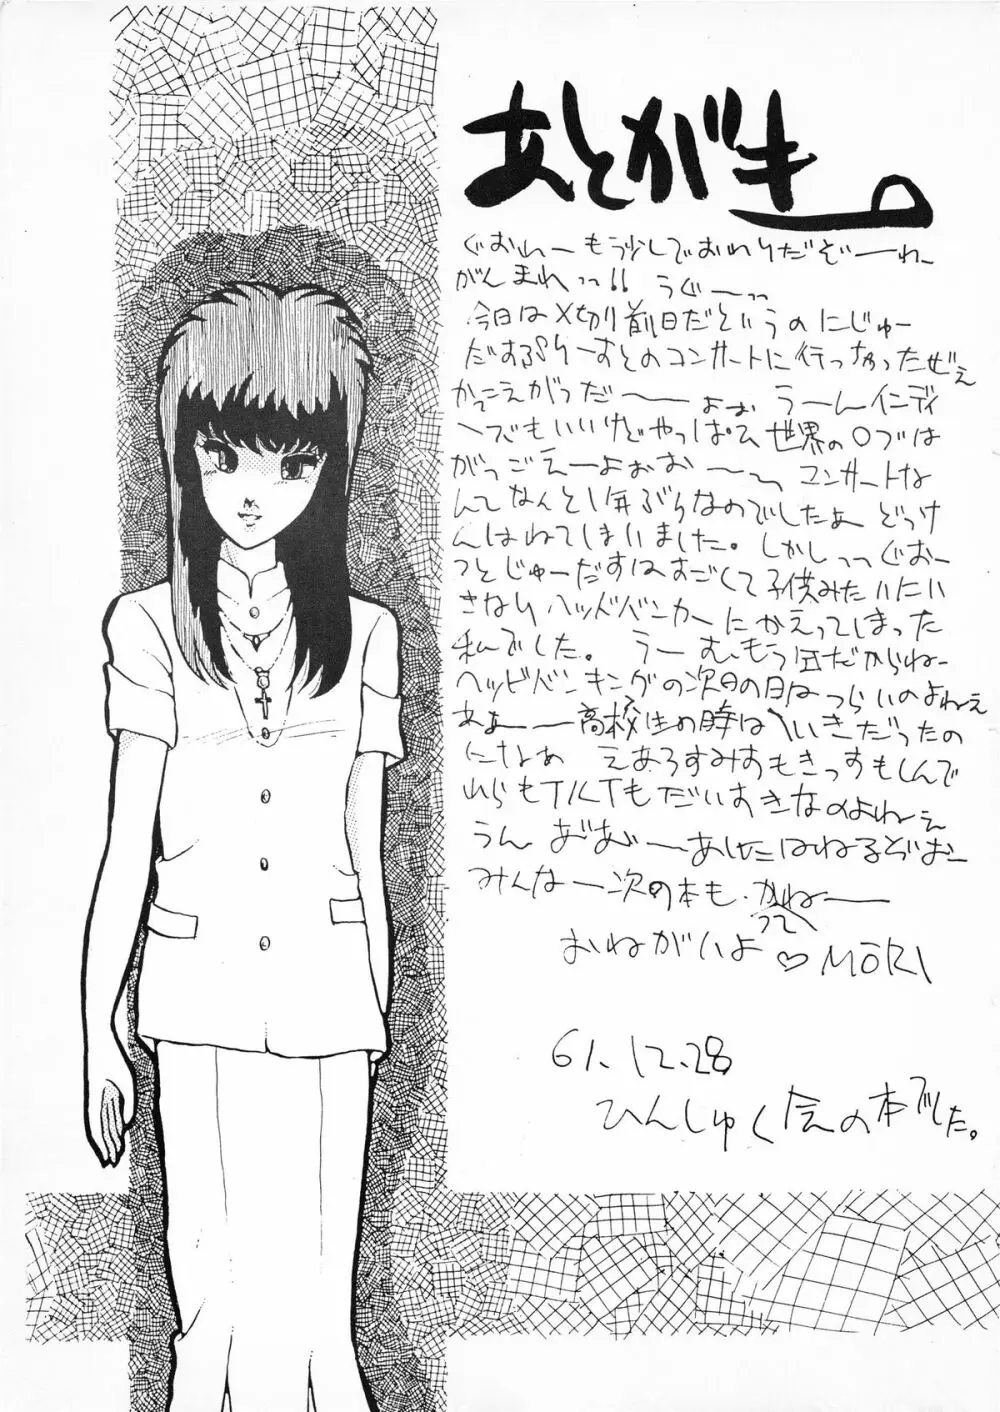 あとがき。
ぐおわーもう少しでおわりだぞーわー
がんまれっっ!! うぐーっっ
今日は〆切り前日だというのにじゅー
だすぷりーすとのコンサートに行っちゃったぜぇ
かっこえがっだ——よぉぉ うーんインディ
ーズでもいいけどやっぱり世界のロブは
がっごえーよぉぉお——〜 コンサートな
んてなんと1年ぶりなのでしたよ どっけ
んはねてしまいました。しかしっっぐおー
っとじゅーだすはすごくて子供みたいにい
きなりヘッドバンカーにかえってしまった
私でした。 うーむ、もう年だからねー
ヘッドバンキングの次の日の日はつらいのよねぇ
あぁ——高校生の時はへいきだったの
になあ えあろすみすもきっすもしんで
れらもTKTもだいすきなのよねぇ
うん おぉおぉ——あしたはねるぞぉー
みんな—次の本も、かってねー
おねがいよ♡MORI
61.12.28
ひんしゅく会の本でした。